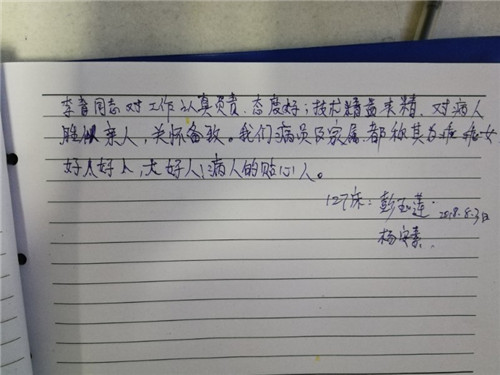 李育同志对工作认真负责、态度好；技术精益求精，对病人
胜似亲人，关怀备致。我们病员及家属都称其为
好大好人，大好人！病人的贴心人。
127床：彭玉莲 2018.8.3日
杨安素